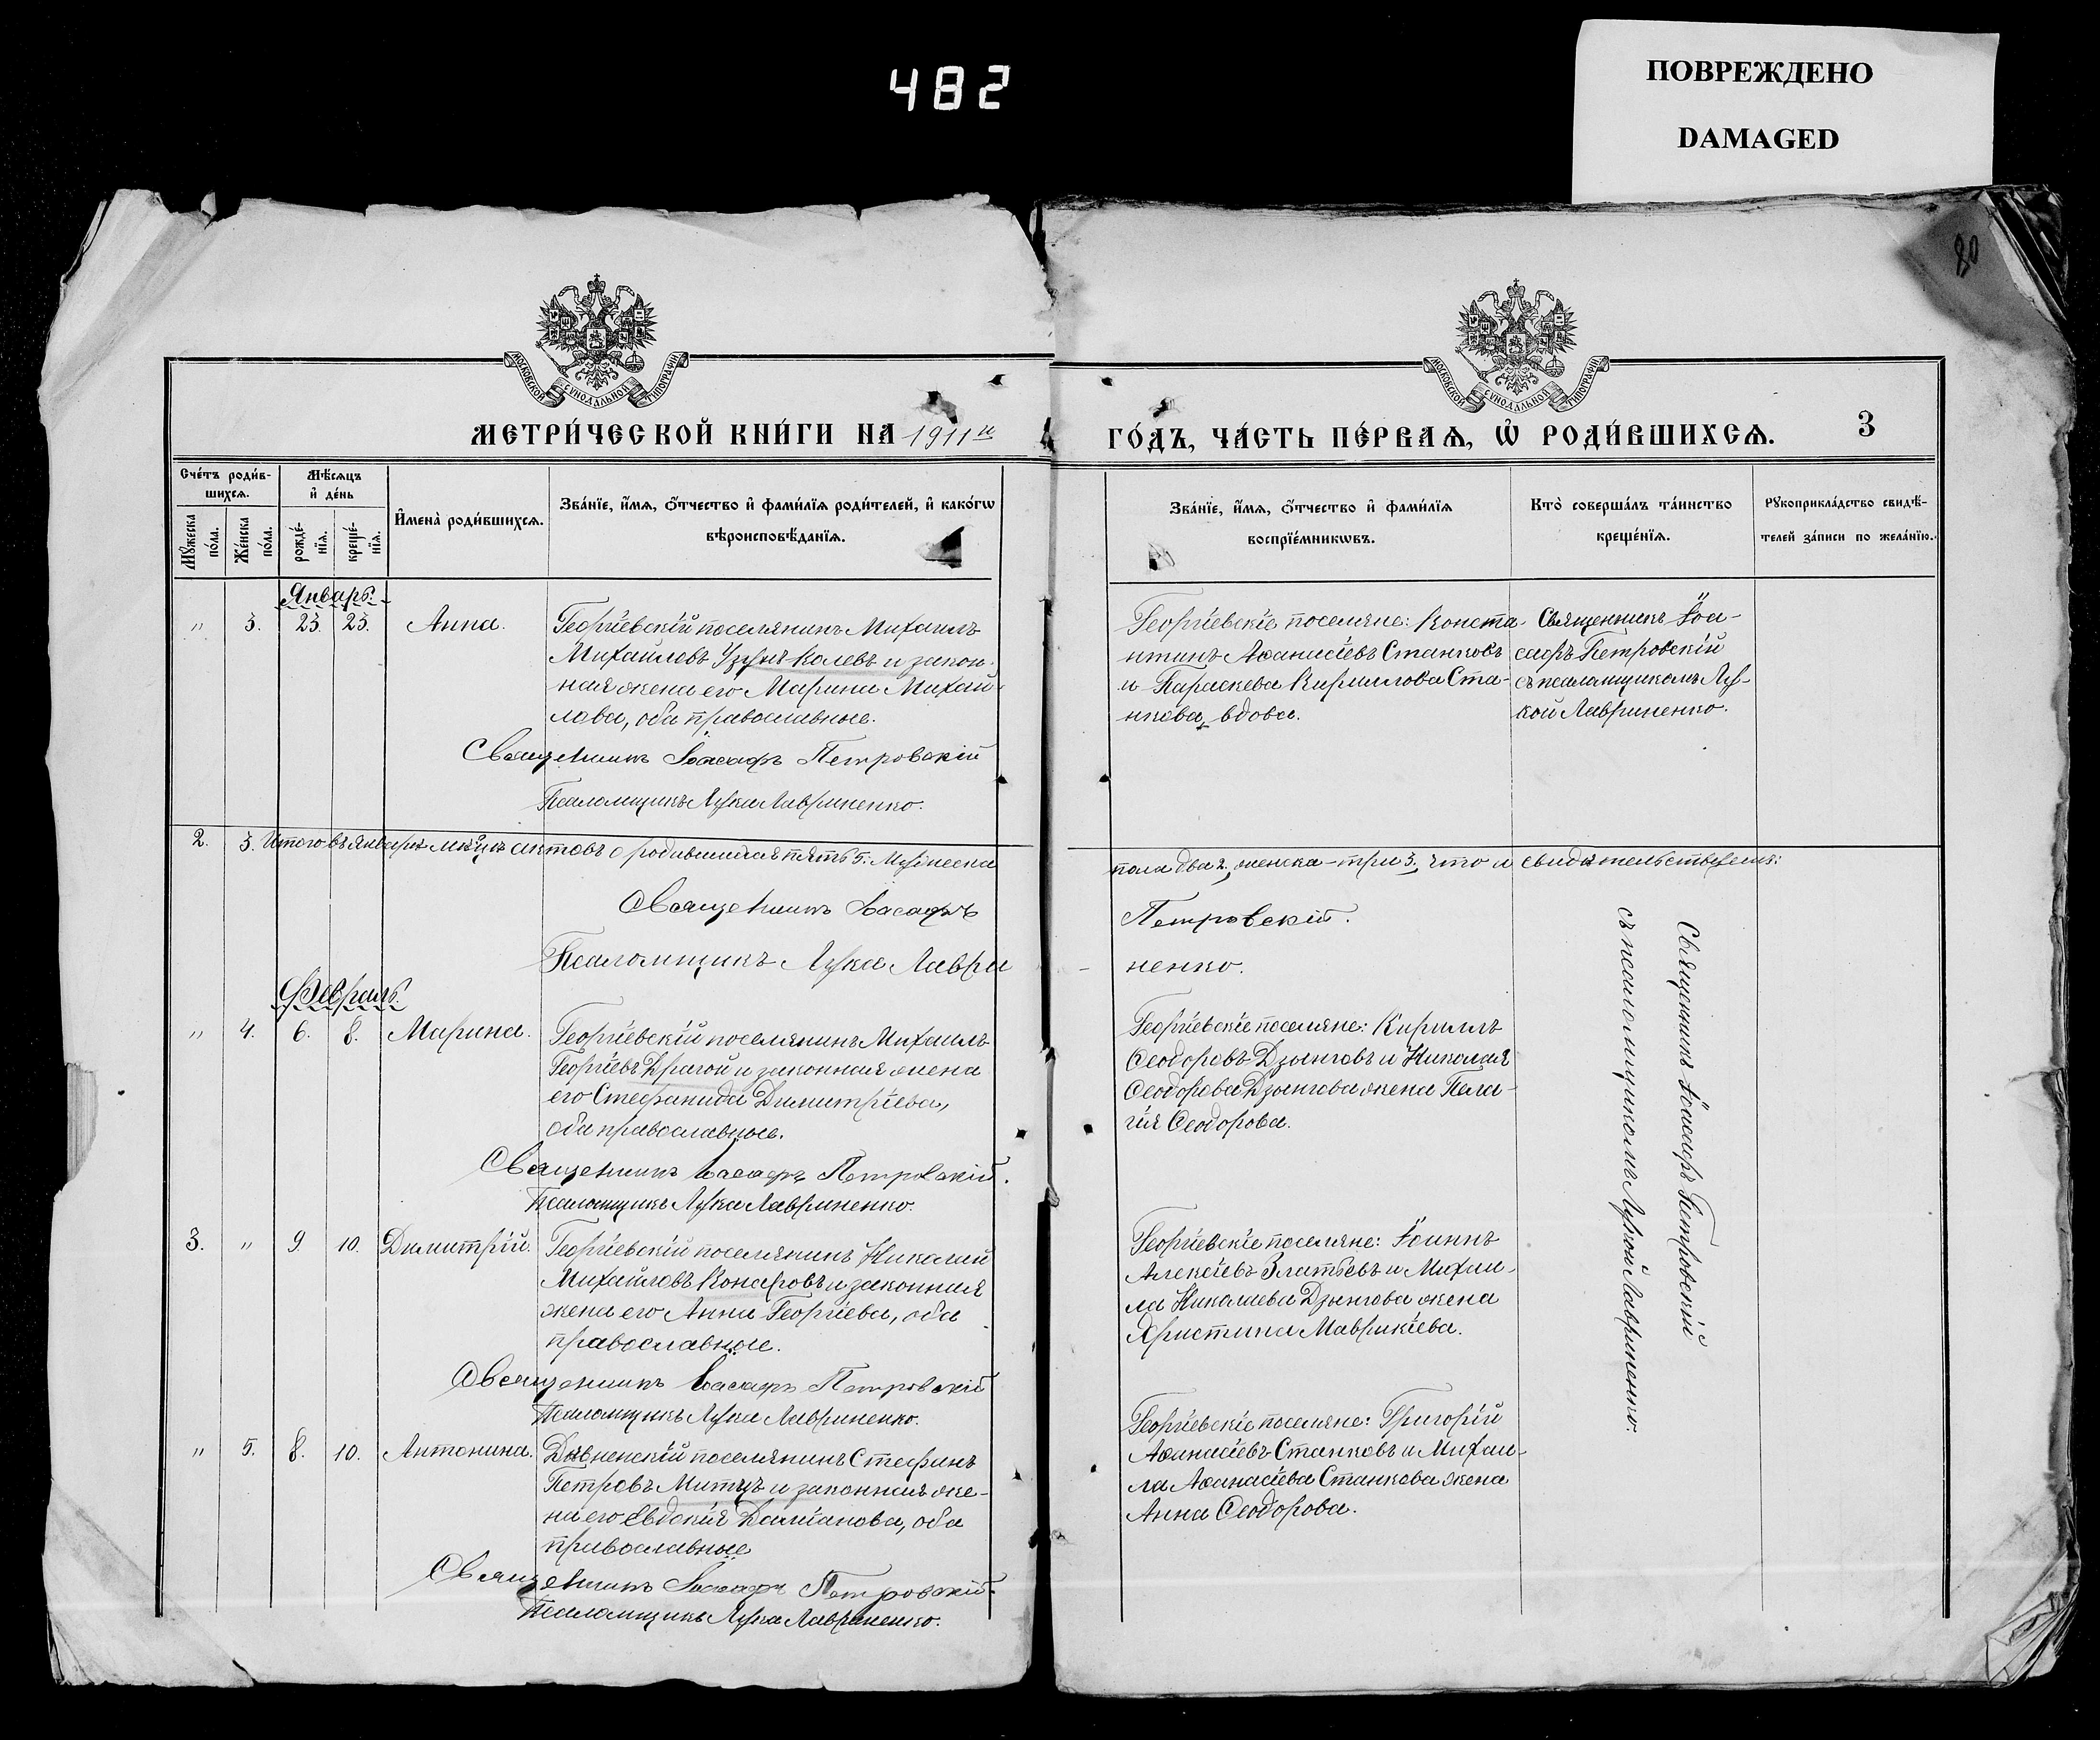 482
ПОВРЕЖДЕНО
DAMAGED
80
МОСКОВСКОЙ СѴНОДАЛЬНОЙ ТИПОГРАФІИ.
МОСКОВСКОЙ СѴНОДАЛЬНОЙ ТИПОГРАФІИ.
МЕТРИ́ЧЕСКОЙ КНИ́ГИ НА 1911й
ГО́ДЪ, ЧА́СТЬ ПЕ́РВАѦ, Ѡ҆ РОДИ́ВШИХСѦ.
3
Сче́тъ роди́в-
шихсѧ.
Мꙋ́жеска
по́ла.
Же́нска
по́ла.
Мѣ́сѧцъ
и҆ де́нь
рожде́-
нїѧ.
креще́-
нїѧ.
И҆мена̀ роди́вшихсѧ.
Зва́нїе, и҆́мѧ, ѻ҆́тчество и҆ фами́лїѧ роди́телей, и҆ како́гѡ
вѣроисповѣ́данїѧ.
Зва́нїе, и҆́мѧ, ѻ҆́тчество и҆ фами́лїѧ
воспрїе́мникѡвъ.
Кто̀ соверша́лъ та́инство
креще́нїѧ.
Рꙋкоприкла́дство свидѣ́-
телей за́писи по жела́нїю.
Январь.
" 3. 23. 23. Анна.
Георгіевскій поселянинъ Михаилъ
Михайловъ Узунъ-Колевъ и закон-
ная жена его Марина Михай-
лова, оба православные.
Священникъ Іоасафъ Петровскій
Псаломщикъ Лука Лавриненко.
Георгіевскіе поселяне: Конста-
нтинъ Аѳанасіевъ Станковъ
и Параскева Кириллова Ста-
нкова, вдова.
Священникъ Іоа-
сафъ Петровскій
съ псаломщикомъ Лу-
кой Лавриненко.
2. 3. Итого въ Январѣ м-цѣ актовъ о родившихся пять 5. Мужеска
пола два 2, женска – три 3, что и свидѣтельствуемъ:
Священникъ Іоасафъ
Петровскій.
Псаломщикъ Лука Лаври
ненко.
Февраль.
" 4. 6. 8. Марина.
Георгіевскій поселянинъ Михаилъ
Георгіевъ Драгой и законная жена
его Стефанида Димитріева,
оба православные.
Священникъ Іоасафъ Петровскій.
Псаломщикъ Лука Лавриненко.
Георгіевскіе поселяне: Кириллъ
Ѳеодоровъ Дзынговъ и Николая
Ѳеодорова Дзынгова жена Пела-
гія Ѳеодорова.
Священникъ Іоасафъ Петровскій
съ псаломщикомъ Лукой Лавриненко.
3. " 9. 10. Димитрій.
Георгіевскій поселянинъ Николай
Михайловъ Конаровъ и законная
жена его Анна Георгіева, оба
православные.
Священникъ Іоасафъ Петровскій
Псаломщикъ Лука Лавриненко.
Георгіевскіе поселяне: Іоаннъ
Алексіевъ Златьевъ и Михаи-
ла Николаева Дзынгова жена
Христина Маврикіева.
" 5. 8. 10. Антонина.
поселянинъ Стефанъ
Петровъ и законная же-
на его Евдокія Даміанова, оба
православные
Священникъ Іоасафъ Петровскій.
Псаломщикъ Лука Лавриненко.
Георгіевскіе поселяне: Григорій
Аѳанасіевъ Станковъ и Михаи-
ла Аѳанасіева Станкова жена
Анна Ѳеодорова.